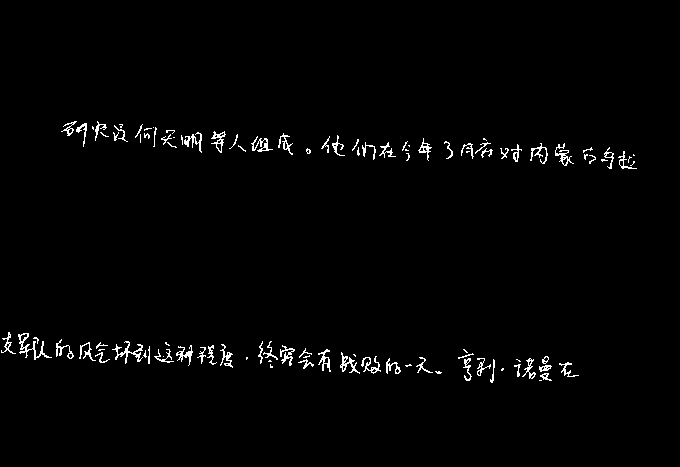 研究员何天明等人组成。他们在今年3月底对内蒙古乌拉
支军队的风气坏到这种程度，终究会有战败的一天。亨利·诺曼在